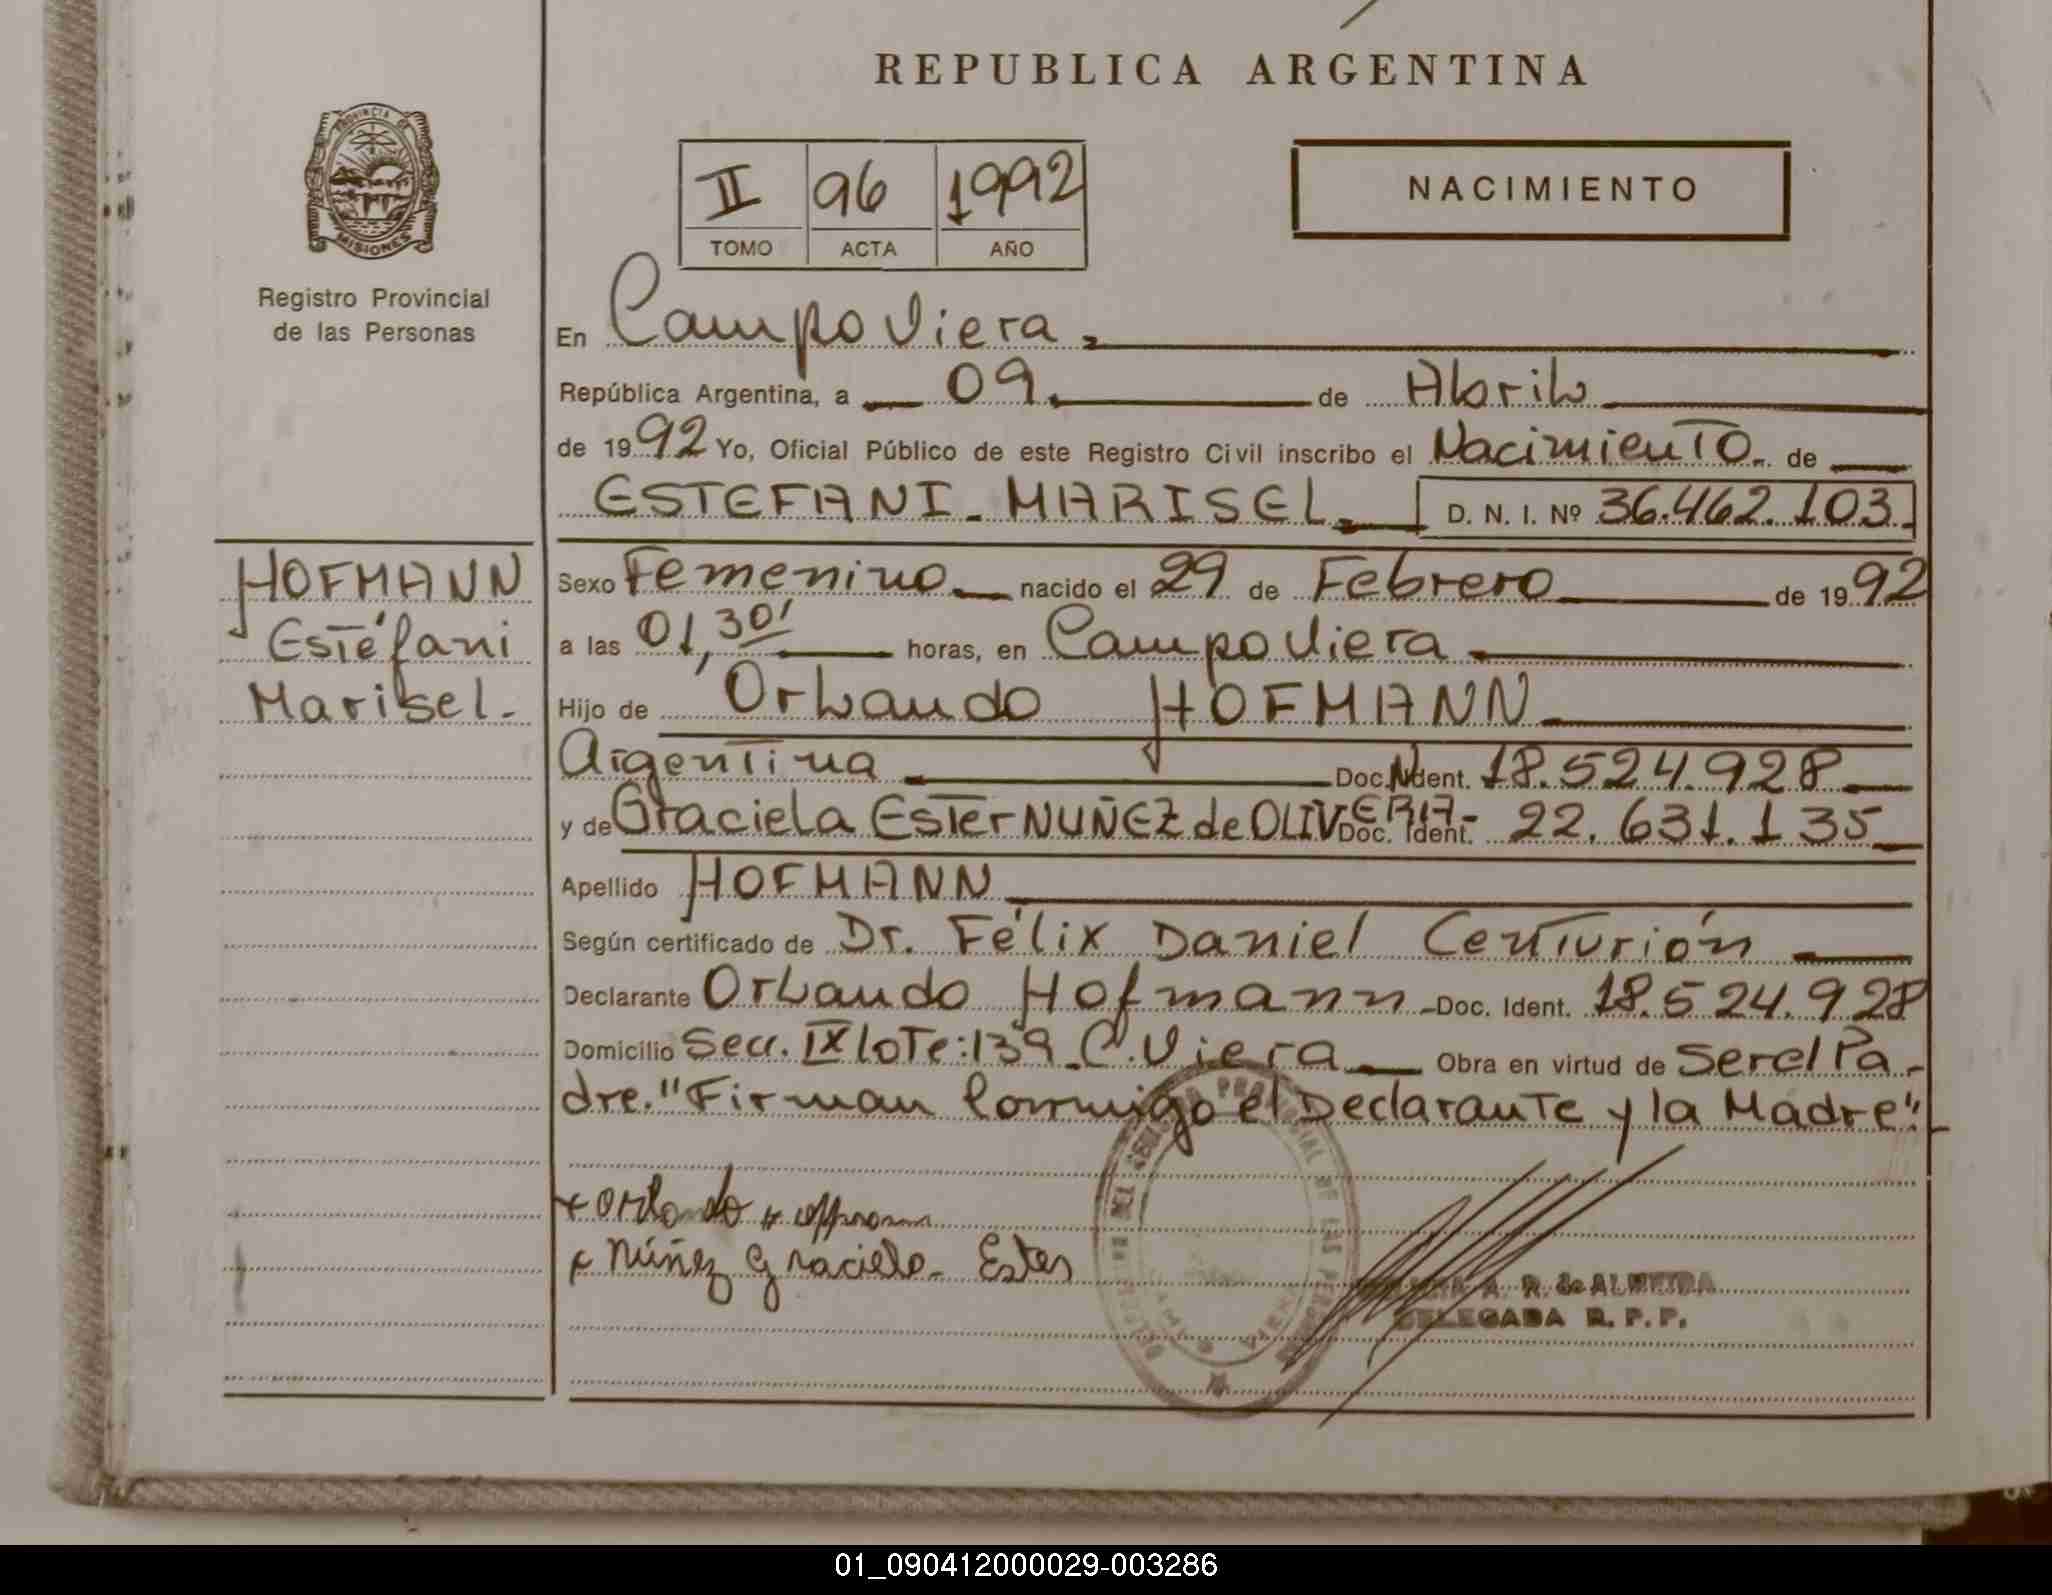 REPUBLICA ARGENTINA
PROVINCIA DE
MISIONES
Registro Provincial
de las Personas
II 96 1992
TOMO ACTA AÑO
NACIMIENTO
En Campo Viera.
República Argentina, a 09. de Abril
de 1992 Yo, Oficial Público de este Registro Civil inscribo el Nacimiento. de
ESTEFANI - MARISEL. D. N. I. Nº 36.462.103.
HOFMANN
Estéfani
Marisel.-
Sexo Femenino nacido el 29 de Febrero de 1992
a las 01,30' horas, en Campo Viera
Hijo de Orlando HOFMANN
Argentina Doc. Ident. 18.524.928
y de Graciela Ester NUÑEZ de OLIVERIA- Doc. Ident. 22.631.135
Apellido HOFMANN
Según certificado de Dr. Félix Daniel Centurión
Declarante Orlando Hofmann - Doc. Ident. 18.524.928
Domicilio Secc. IX lote: 139 - C. Viera Obra en virtud de Ser el Pa-
dre. "Firman Conmigo el Declarante y la Madre".-
x Orlando
x Núñez Graciela - Ester
A. R. de ALMEIDA
DELEGADA R. P. P.
01_090412000029-003286